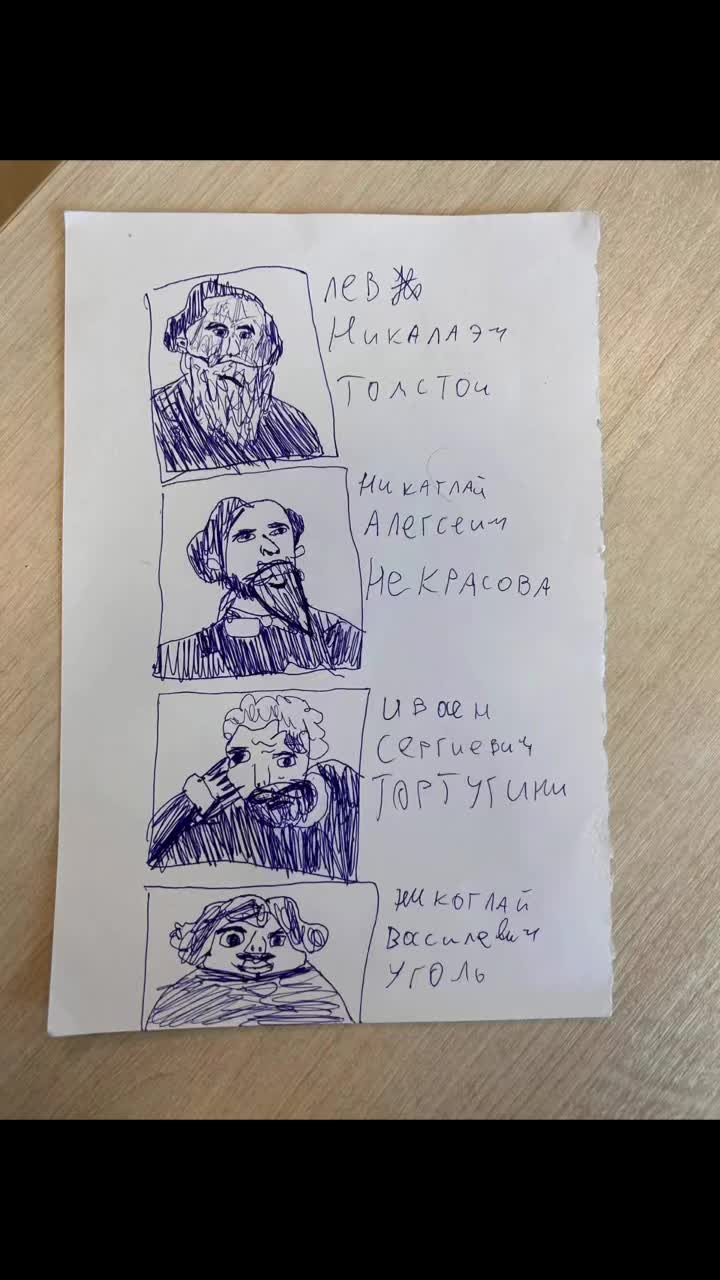 ЛЕВ
НИКАЛАЭЧ
ТОЛСТОЙ
НИКАТЛАЙ
АЛЕГСЕИЧ
НЕКРАСОВА
ИВАЕН
СЕРГИЕВИЧ
ТОРТУГИНИ
НИКОГЛАЙ
ВАСИЛЕВИЧ
УГОЛЬ